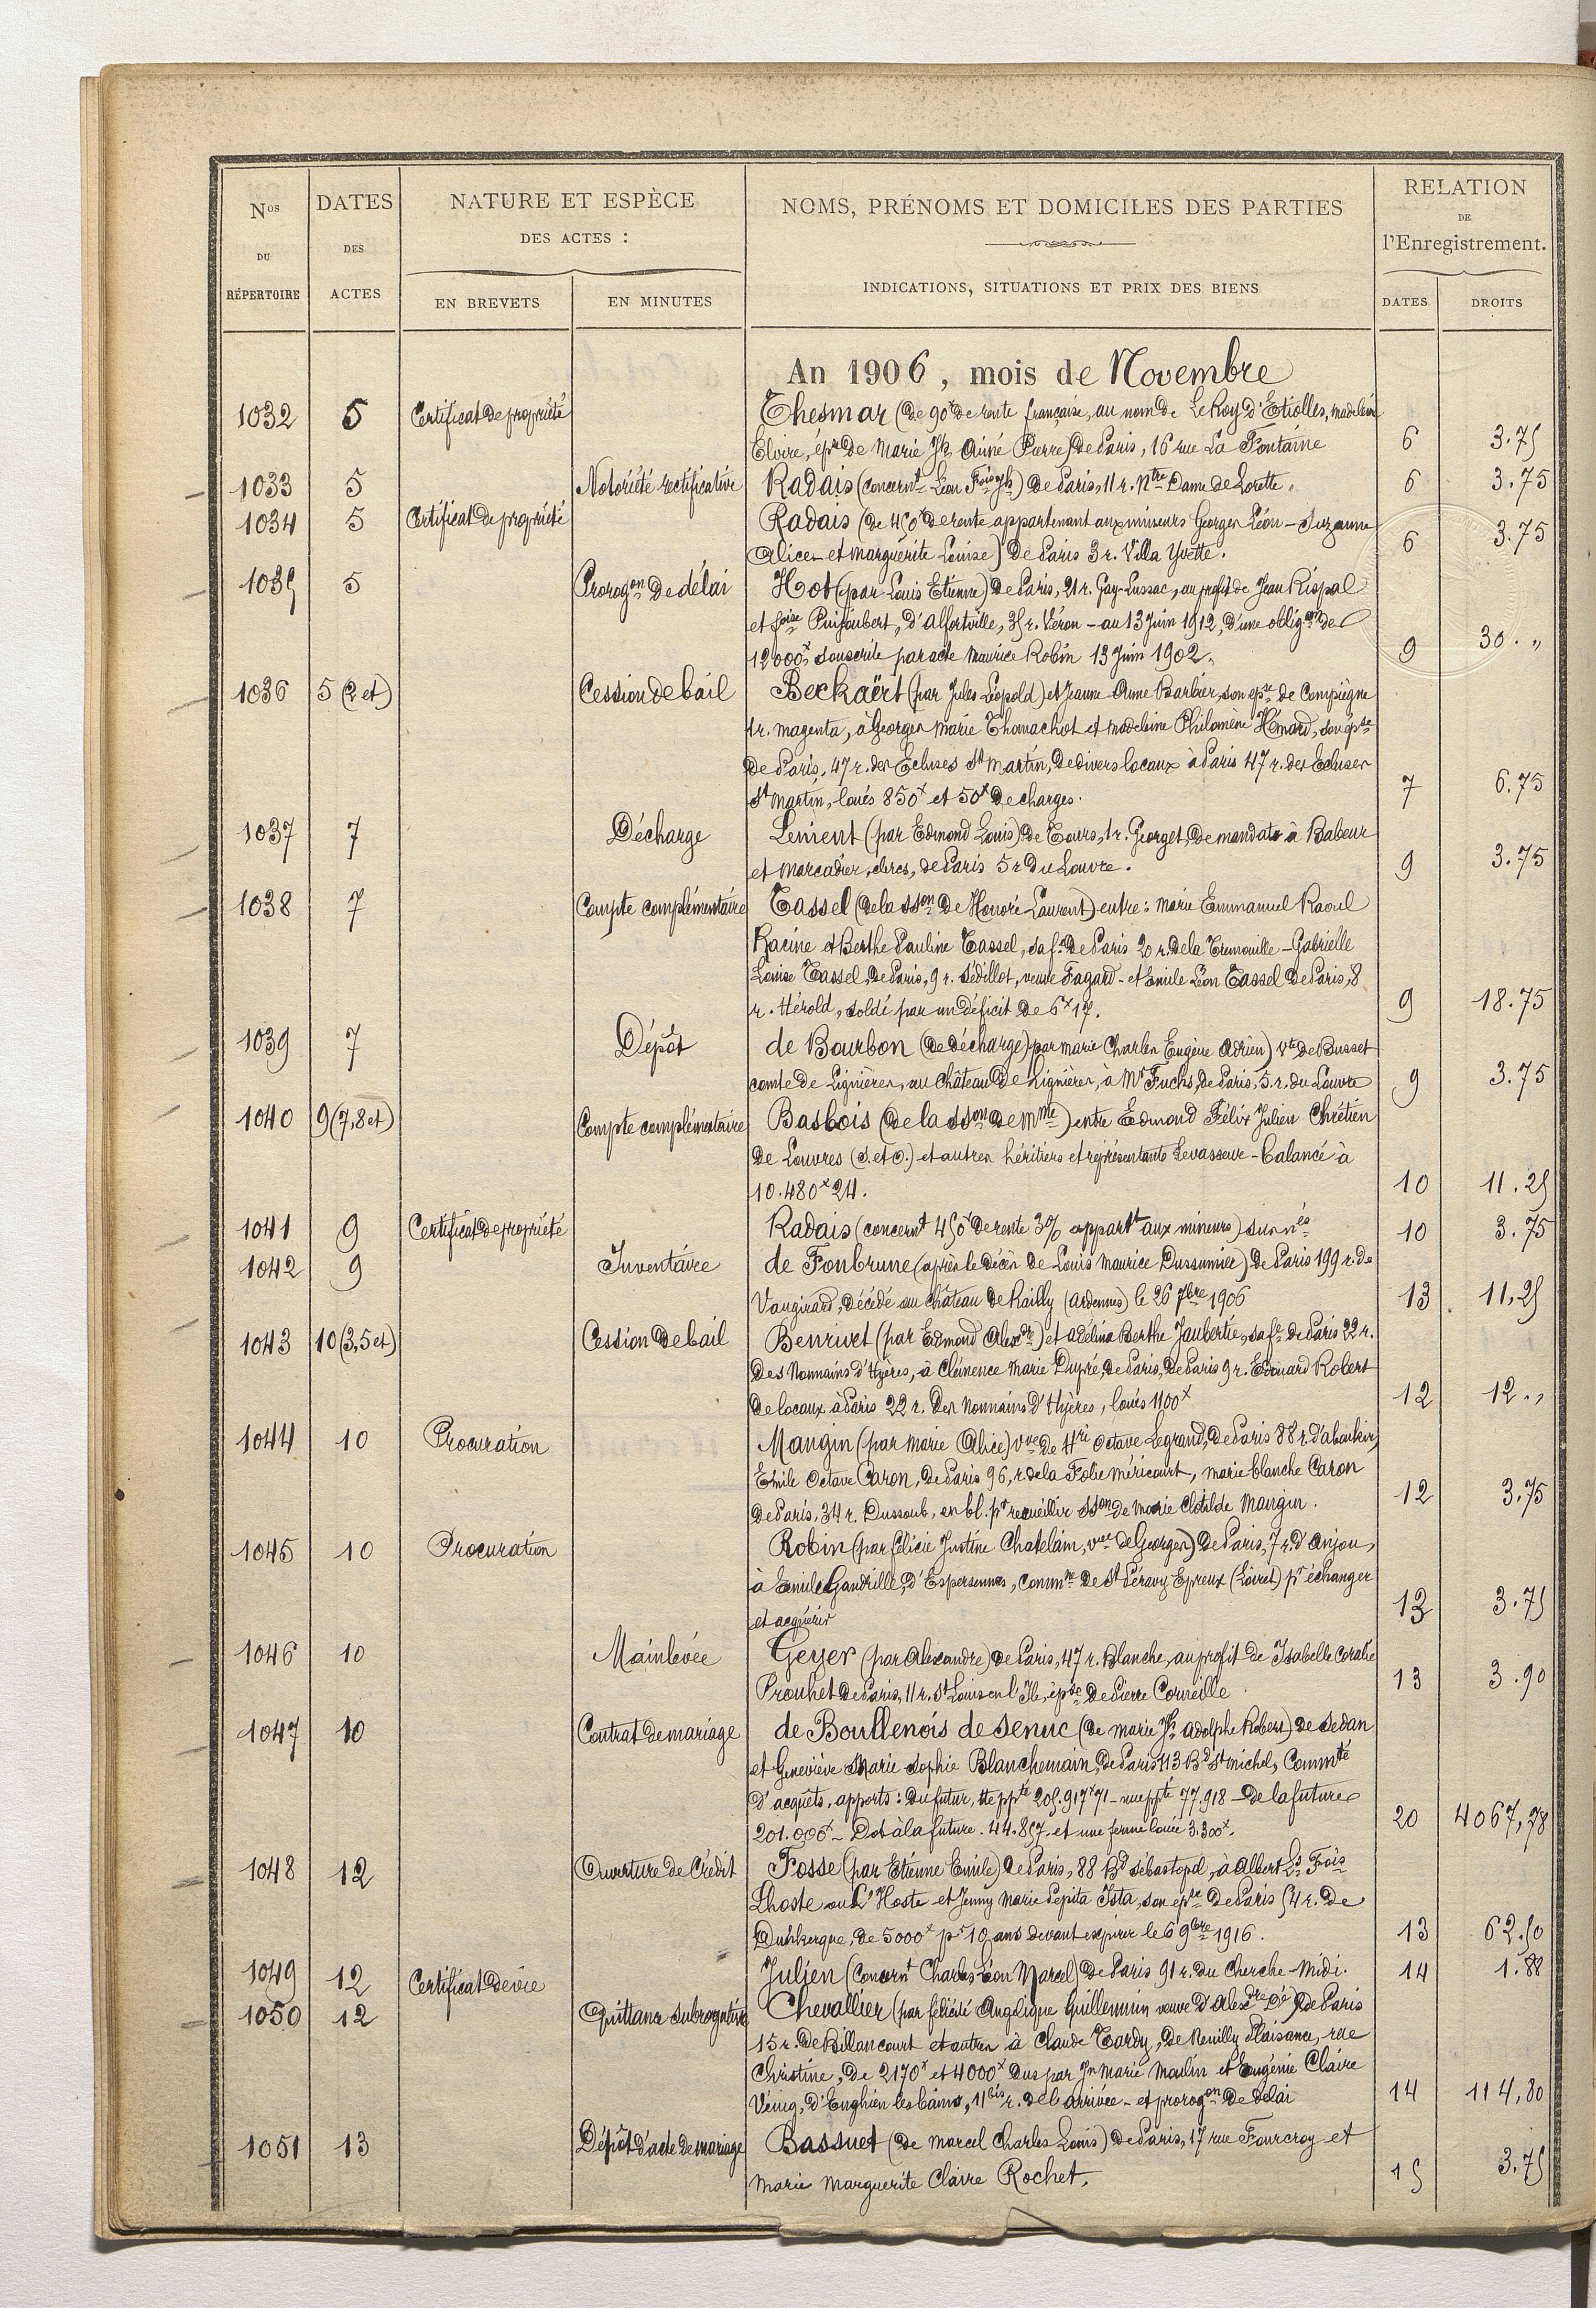 Nos DU RÉPERTOIRE
DATES DES ACTES
NATURE ET ESPÈCE DES ACTES :
EN BREVETS
EN MINUTES
NOMS, PRÉNOMS ET DOMICILES DES PARTIES
INDICATIONS, SITUATIONS ET PRIX DES BIENS
RELATION DE l'Enregistrement.
DATES
DROITS
An 1906, mois de Novembre
1032 5 Certificat de propriété Thesmar (de 90f de rente française, au nom de Le Roy d'Etiolles, Madeleine
Elvire, épse de Marie Jh Aimé Pierre) de Paris, 16 rue La Fontaine 6 3.75
1033 5 Notoriété rectificative Radais (concernt Léon Fois Jh) de Paris, 11 r. Ntre Dame de Lorette. 6 3.75
1034 5 Certificat de propriété Radais (de 450f de rente appartenant aux mineurs Georges Léon - Suzanne
Alice - et Marguerite Louise) de Paris 3 r. Villa Yvette. 6 3.75
1035 5 Prorogon de délai Hot (par Louis Etienne) de Paris, 21 r. Gay-Lussac, au profit de Jean Rispal
et foise Puijoubert, d'Alfortville, 35 r. Véron - au 13 Juin 1912, d'une obligon de
12000f, souscrite par acte Maurice Robin 13 Juin 1902. 9 30. "
1036 5 (2 et) Cession de bail Beckaërt (par Jules Léopold) et Jeanne Anne Barbier, son epse de Compiègne
1 r. Magenta, à Georges Marie Thomachot et Madeleine Philomène Hémard, son épse
de Paris, 47 r. des Ecluses St Martin, de divers locaux à Paris 47 r. des Ecluses
St Martin, loués 850f et 50f de charges. 7 6.75
1037 7 Décharge Lenient (par Edmond Louis) de Tours, 1 r. Georget, de mandats à Babeur
et Marcadier, clercs, de Paris 5 r du Louvre. 9 3.75
1038 7 Compte complémentaire Tassel (de la sson de Honoré Laurent) entre : Marie Emmanuel Raoul
Racine et Berthe Pauline Tassel, sa fe de Paris 20 r. de la Tremouille - Gabrielle
Louise Tassel, de Paris, 9 r. Sédillot, veuve Fagard - et Emile Léon Tassel de Paris, 8
r. Hérold, soldé par un déficit de 6f 17. 9 18.75
1039 7 Dépôt de Bourbon (de décharge) par Marie Charles Eugène Adrien) Vte de Busset
comte de Lignières, au Château de Lignières, à Mr Fuchs, de Paris, 5. r. du Louvre 9 3.75
1040 9 (7, 8 et) Compte complémentaire Basbois (de la sson de Mme) entre Edmond Félix Julien Chrétien
de Louvres (S. et O.) et autres héritiers et représentants Levasseur - balancé à
10.480f 24. 10 11.25
1041 9 Certificat de propriété Radais (concernt 450f de rente 3% appartt aux mineurs) susnés 10 3.75
1042 9 Inventaire de Fonbrune (après le décès de Louis Maurice Dussumier) de Paris 199 r. de
Vaugirard, décédé au château de Railly (Ardennes) le 26 7bre 1906 13 11,25
1043 10 (3, 5 et) Cession de bail Benrivet (par Edmond Alexdre) et Adelina Berthe Jaubertie, sa fe de Paris 22 r.
des Nonnains d'Hyères, à Clémence Marie Dupré, de Paris, de Paris 9 r. Edouard Robert
de locaux à Paris 22 r. des Nonnains d'Hyères, loués 1100f 12 12. "
1044 10 Procuration Mangin (par Marie Alice) vve de Hri Octave Legrand, de Paris 88 r. d'Aboukir,
Emile Octave Caron, de Paris 96, r. de la Folie Méricourt, Marie blanche Caron
de Paris, 34 r. Dussoub, en bl. pr recueillir sson de Marie Clotilde Mangin. 12 3.75
1045 10 Procuration Robin (par Félicie Justine Chatelain, vve de Georges) de Paris, 7 r. d'Anjou,
à Emile Gandrille, d'Espersennes, commne de St Péravy Epreux (Loiret) pr échanger
et acquérir 12 3.75
1046 10 Mainlevée Geyer (par Alexandre) de Paris, 47 r. Blanche, au profit de Isabelle Coralie
Prouhet de Paris, 11 r. St Louis en l'Ile, épse de Pierre Corneille 13 3.90
1047 10 Contrat de mariage de Boullenois de Senuc (de Marie Jh Adolphe Robert) de Sedan
et Geneviève Marie Sophie Blanchemain, de Paris 113 Bd St Michel, Commté
d'acquêts, apports : du futur, tte ppté 205.917f 71 - nue ppté 77.918 - de la future
201.000f - Dot à la future. 44.857. et une ferme louée 3.300f. 20 4067,78
1048 12 Ouverture de Crédit Fosse (par Etienne Emile) de Paris, 88 Bd Sébastopol, à Albert Ls Fois
Lhoste ou L'Hoste et Jenny Marie Pepita Ista, son epse de Paris 54 r. de
Dunkerque, de 5000f pr 10 ans devant expirer le 6 9bre 1916. 13 62.50
1049 12 Certificat de vie Julien (Concernt Charles Léon Marcel) de Paris 91 r. du Cherche-Midi. 14 1.88
1050 12 Quittance subrogative Chevallier (par Félicité Angélique Guillemin veuve d'Alexdre Dé) de Paris
15 r. de Billancourt et autres à Claude Tardy, de Neuilly Plaisance, rue
Christine, de 2170f et 4000f dus par Jn Marie Moulin et Eugénie Claire
Vénig, d'Enghien les bains, 11bis r. de l'arrivée - et prorogon de délai 14 114,80
1051 13 Dépôt d'acte de mariage Bassuet (de Marcel Charles Louis) de Paris, 17 rue Fourcroy et
Marie Marguerite Claire Rochet. 15 3.75